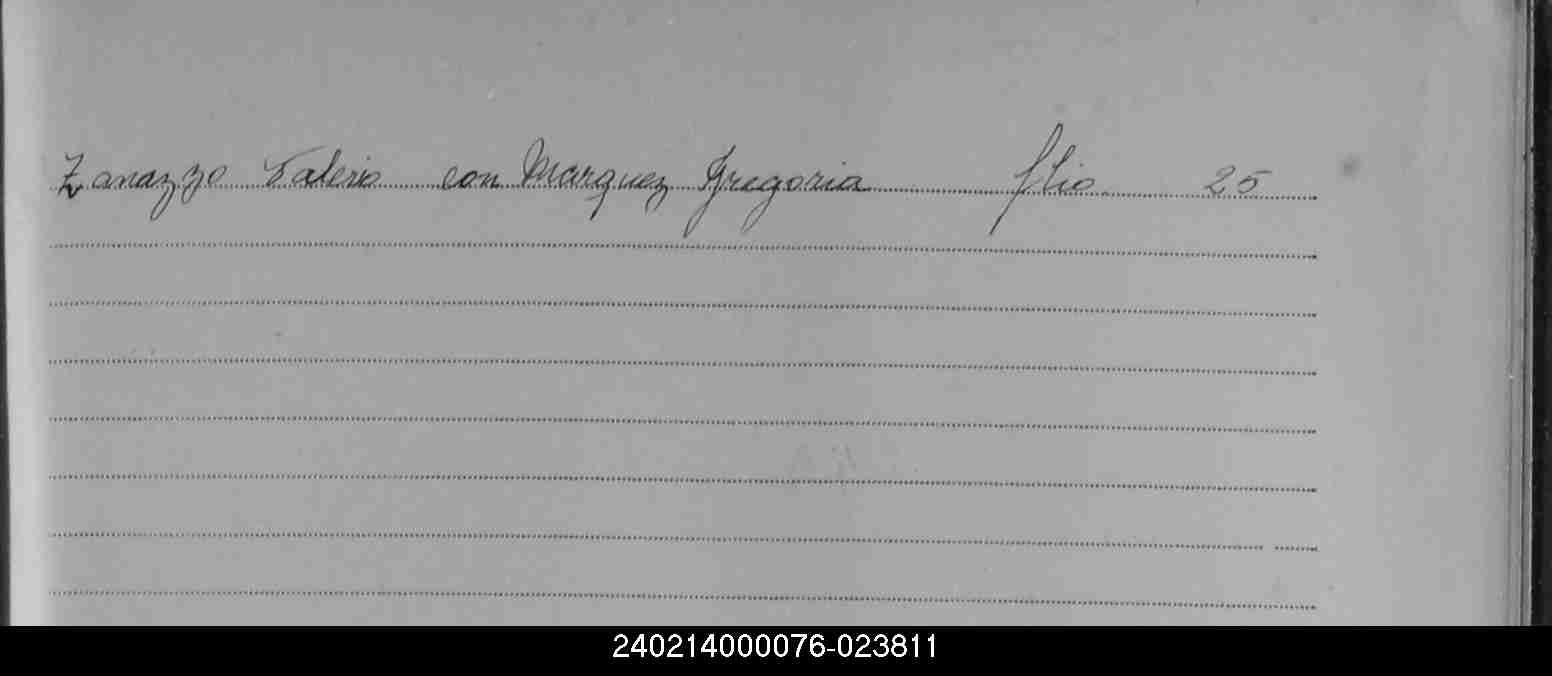 Zanazzo Valerio con Marquez Gregoria flio 25
240214000076-023811